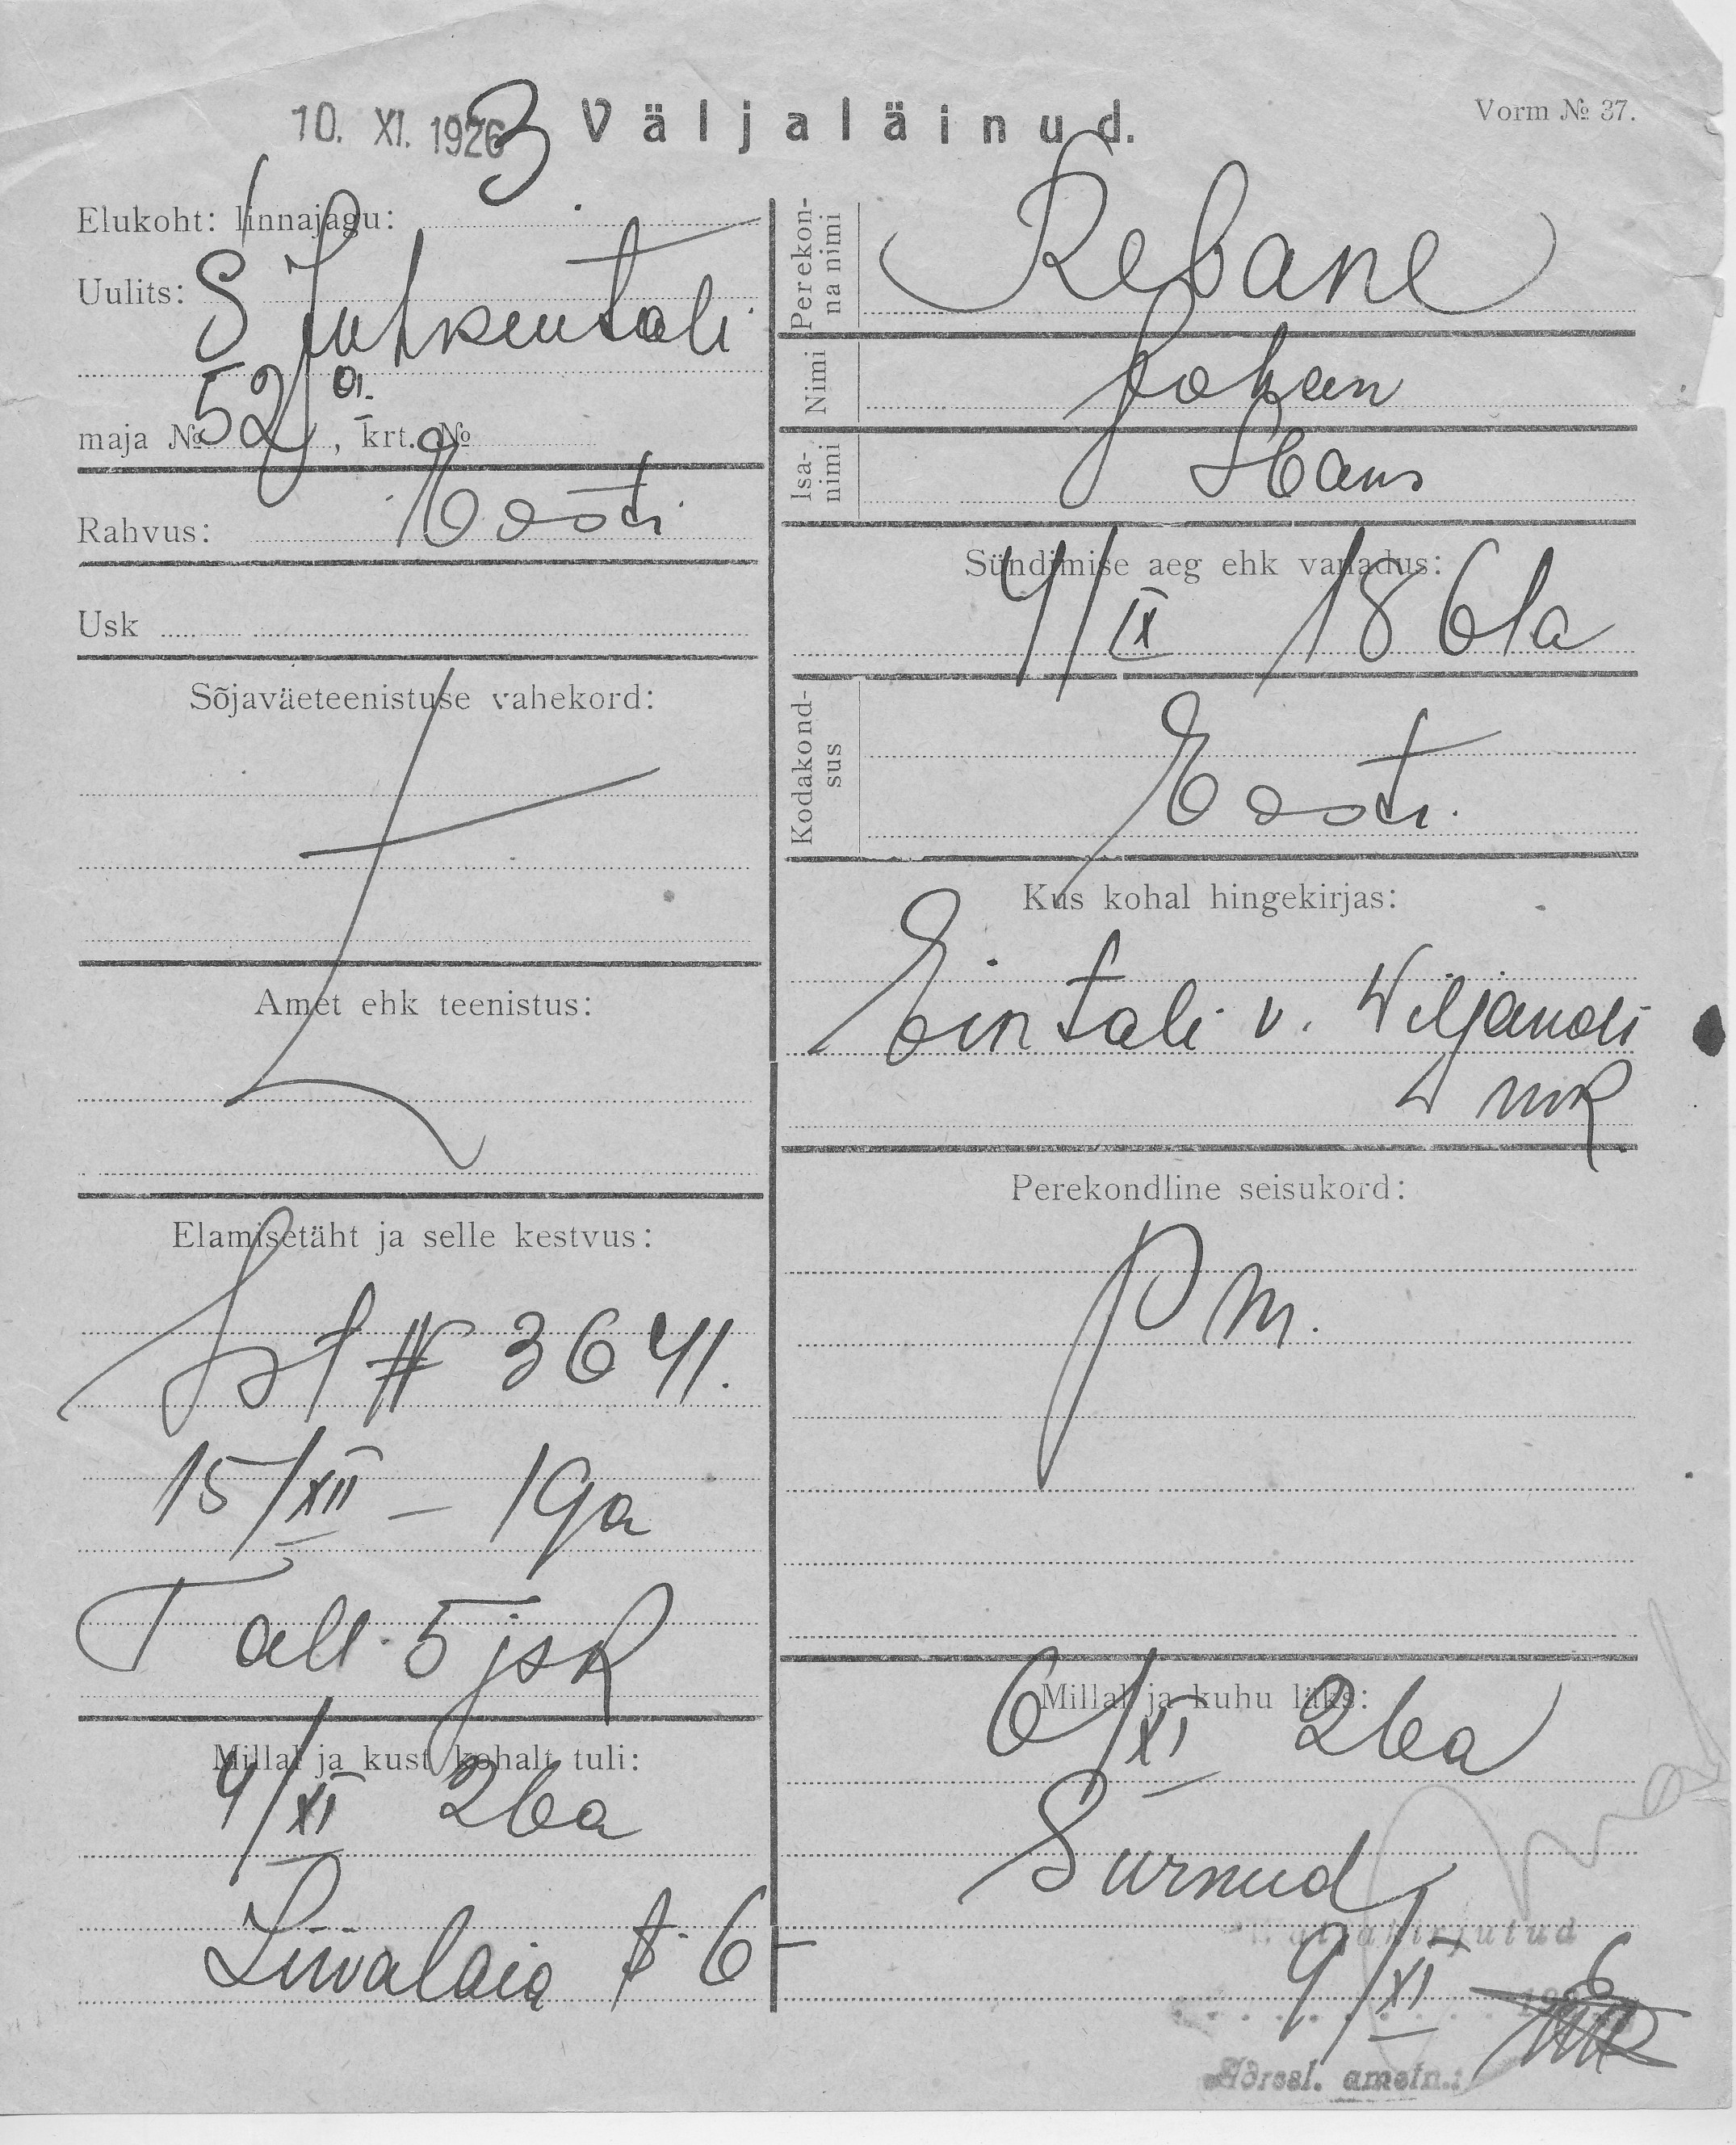 10. XI. 1926 3 Väljaläinud.
Vorm № 37.
Elukoht: linnajagu:
Uulits: S Juhkentali
maja № 52 a., krt. №
Rahvus: Eesti
Usk
Sõjaväeteenistuse vahekord:
Amet ehk teenistus:
Elamisetäht ja selle kestvus:
# 3641.
15/XII – 19a
Tall. 5 jsk
Millal ja kust kohalt tuli:
4/XI 26a
Liivalaia t. 6 –
Perekonna nimi Rebane
Nimi Johan
Isanimi Hans
Sündimise aeg ehk vanadus:
4/IX 1861a
Kodakondsus Eesti.
Kus kohal hingekirjas:
v. Wiljandi
mk
Perekondline seisukord:
p m.
Millal ja kuhu läks:
6/XI 26a
Surnud
9/XI 6
Adressl. ametn.: